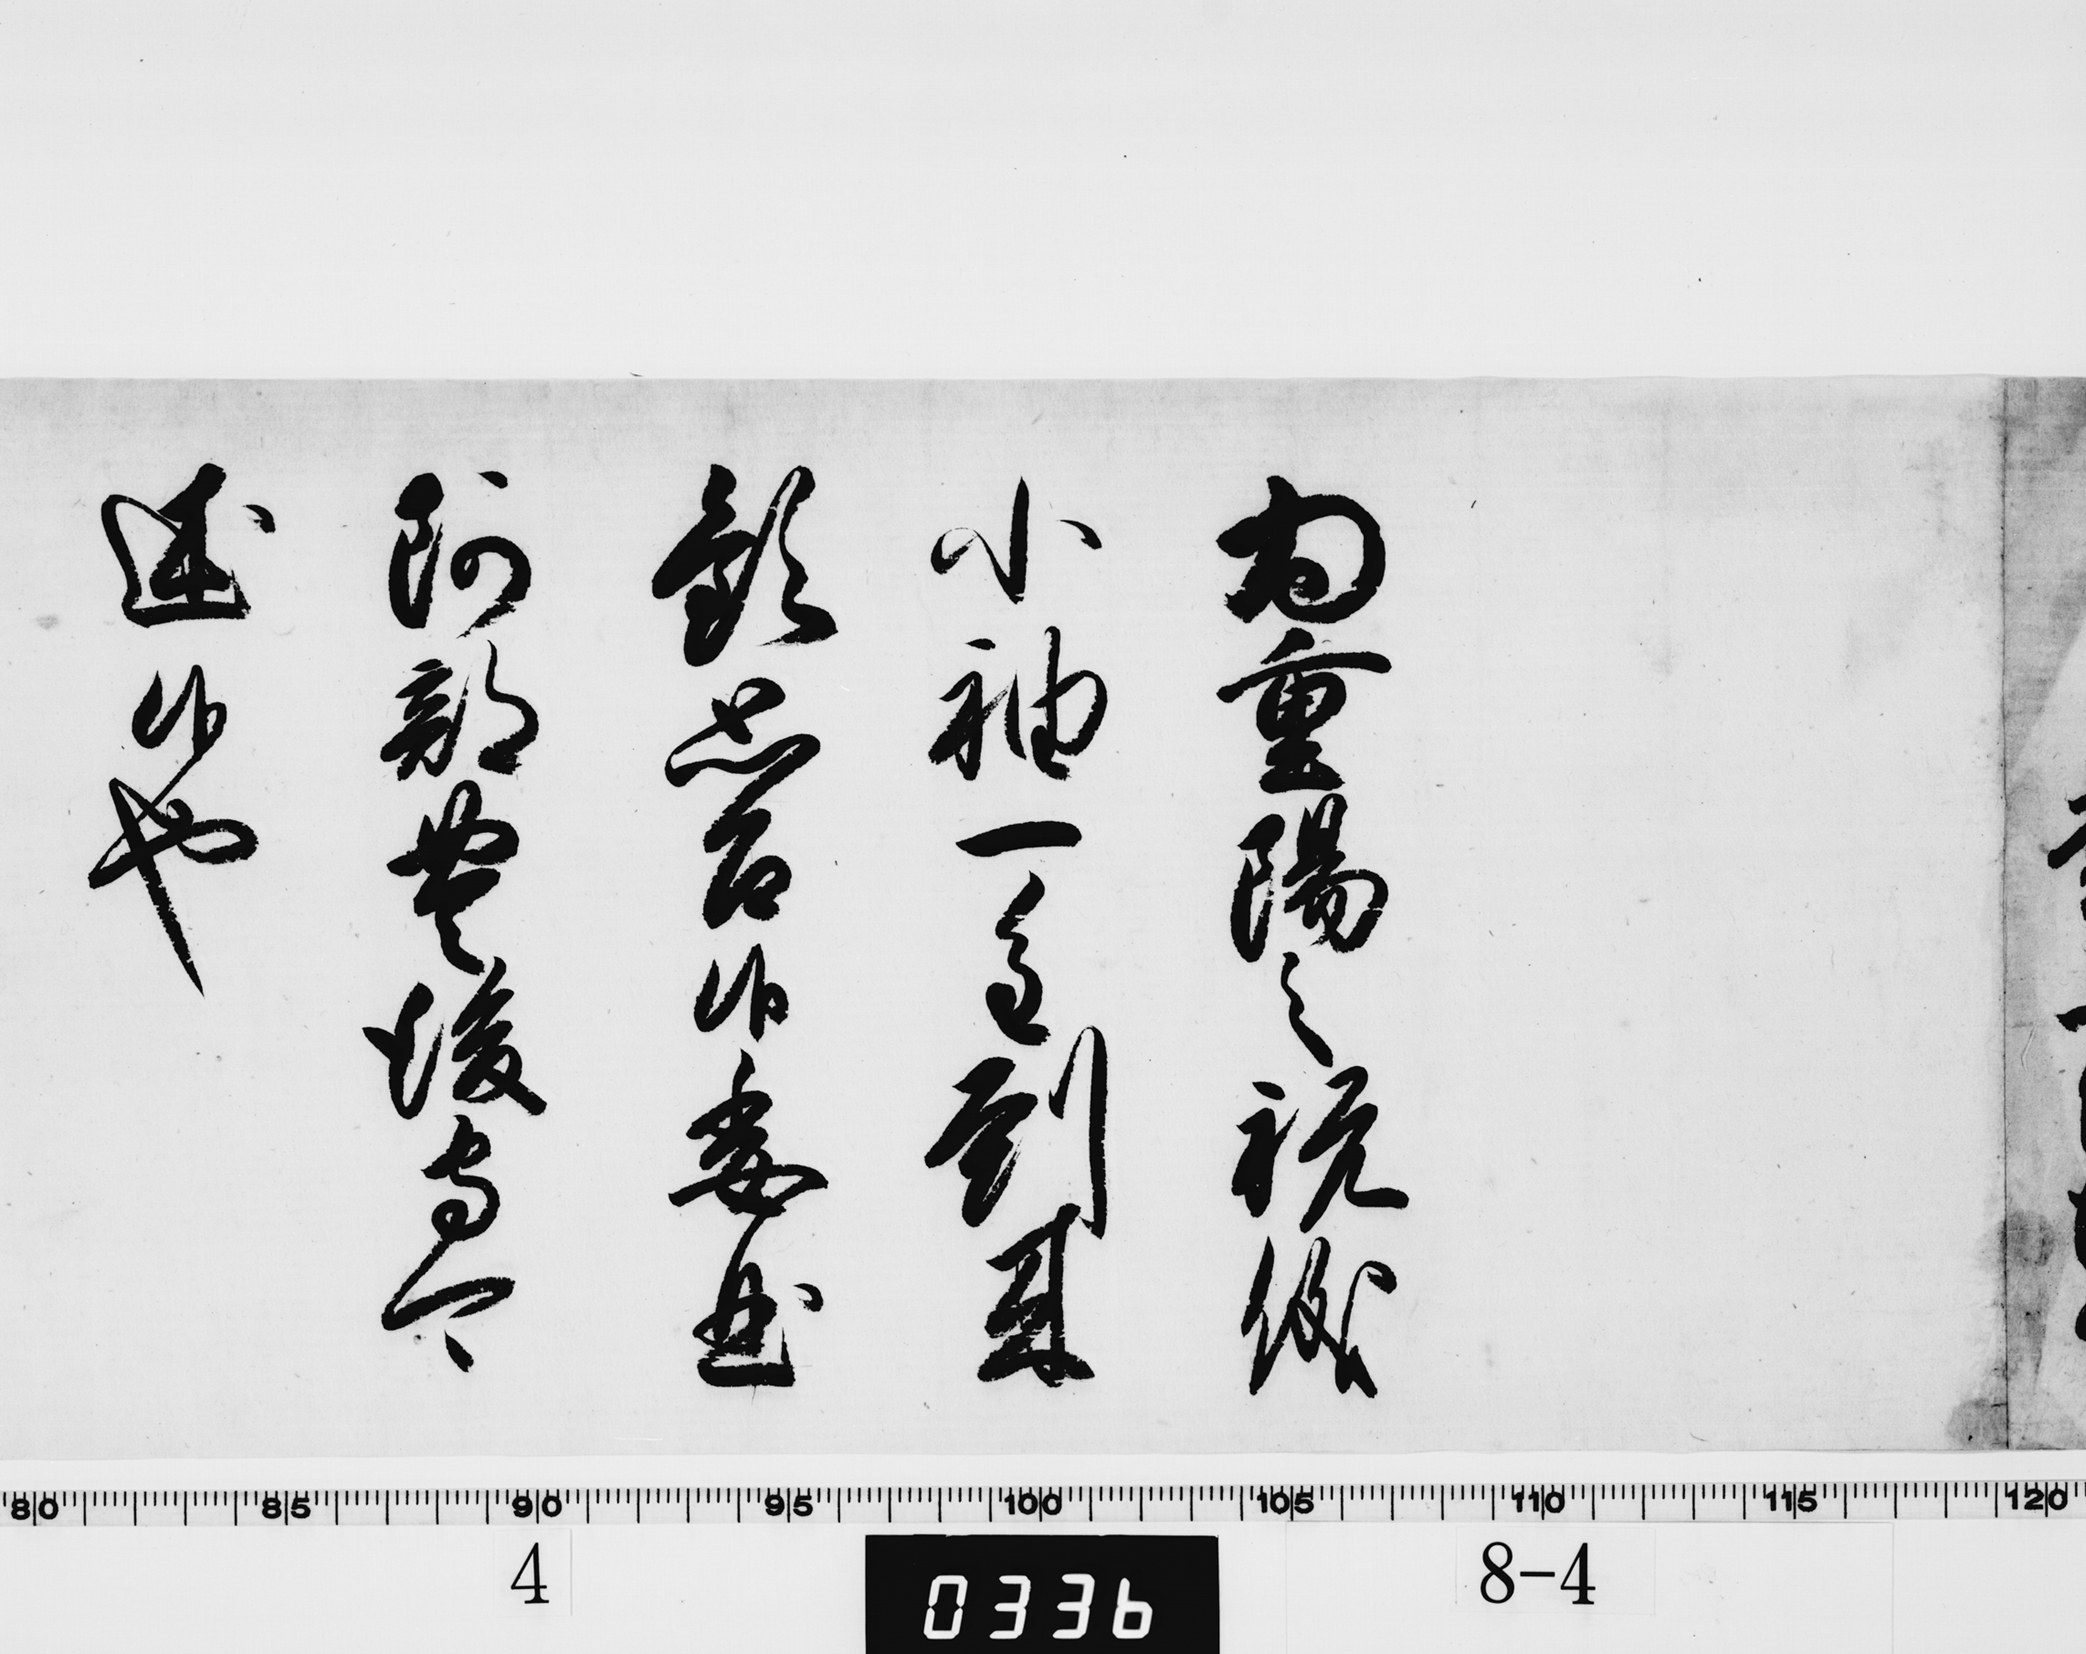 為重陽之祝儀
小袖一重到来
歓思召候委曲
阿部豊後守可
述候也
80 85 90 95 100 105 110 115 120
4
0336
8-4